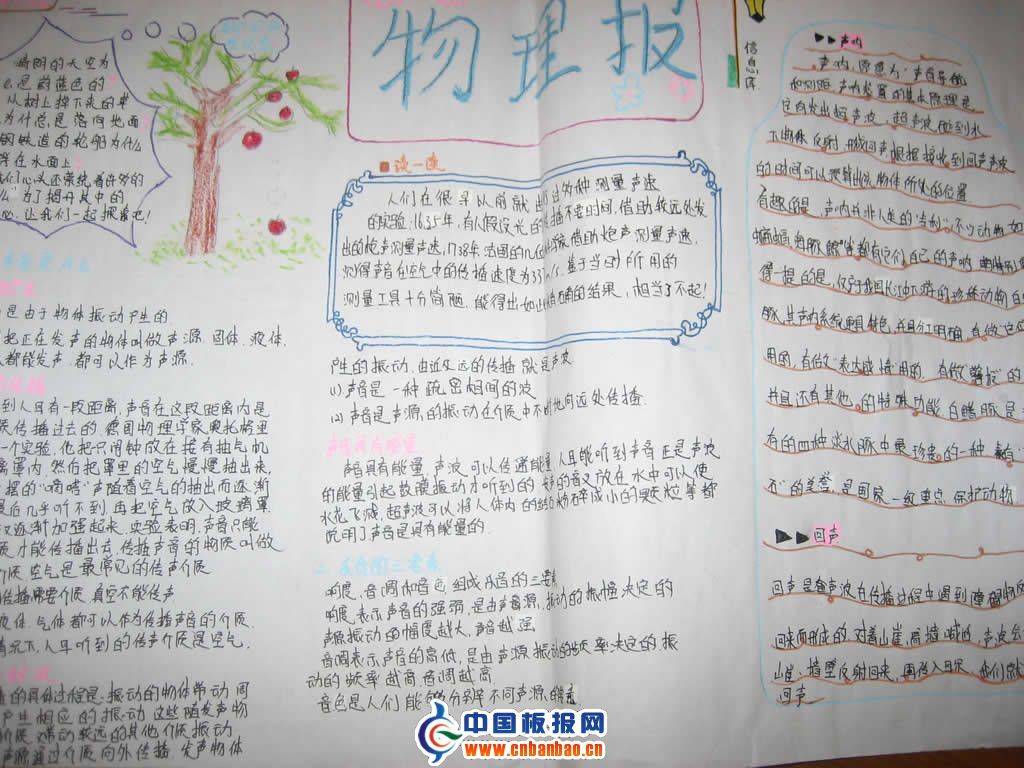 物理报
晴朗的天空为
么是蔚蓝色的
从树上掉下来的苹
为什总是落向地面
钢铁造的轮船为什么
浮在水面上
让我们一起探着吧!
是由于物体振动产生的
把正在发声的物体叫做声源.固体、液体、
都能发声.都可以作为声源.
传播
到人耳有一段距离,声音在这段距离内是
质传播过去的.德国物理学家奥托格里
一个实验,他把只闹钟放在接有抽气机
罩内,然后把罩里的空气慢慢抽出来,
摆的“嘀嗒”声随着空气的抽出而逐渐
最后几乎听不到,再把空气放入玻璃罩
又逐渐加强起来.实验表明,声音只能
质才能传播出去.传播声音的物质叫做
介质.空气是最常见的传声介质
传播需要介质,真空不能传声
液体、气体都可以作为传播声音的介质.
情况下,人耳听到的传声介质是空气.
的具体过程是:振动的物体带动周
产生相应的振动.这些随发声物
声源通过介质向外传播.发声物体
读一读
人们在很早以前就
的实验.1635年,有人假设光的传播不要时间,借助较远处发
出的炮声测量声速,1738年,法国的几位
测得声音在空气中的传播速度为337
基于当时所用的
测量工具十分简陋.能得出如此精确的结果,相当了不起!
产生的振动.由近及远的传播就是声波
(1).声音是一种疏密相间的波
(2).声音是声源的振动在介质中不断地向远处传播.
声音具有能量
声音具有能量.声波可以传递能量.人耳能听到声音正是声波
的能量引起鼓膜振动才听到的.发声的音叉放在水中可以使
水花飞溅.超声波可以将人体内的结石粉碎成小的颗粒等都
说明了声音是具有能量的.
二.乐音的三要素
响度、音调和音色组成乐音的三要素
响度:表示声音的强弱,是由声音源振动的振幅决定的
声源振动的幅度越大,声音越强
音调表示声音的高低,是由声源振动的频率决定的.振
动的频率越高音调越高
音色是人们能够分辨不同声源的
信息库
声呐
声呐,原意为:声音导航
和测距.声呐装置的基本原理是
定向发出超声波,超声波碰到水
下物体反射,形成回声.根据接收到回声
的时间可以测出水物体所处的位置
有趣的是,声呐并非人类的“专利”不少动物如
蝙蝠、海豚、鲸等都有它们自己的声呐
用的,有做“表达感情”用的,有做“警报”的
并且还有其他的特殊功能.白鳍豚是
有的四种淡水豚中最珍贵的一种
的美誉,是国家一级重点保护动物
回声
回声是声波在传播过程中遇到障碍物
回来而形成的.对着山崖、高墙喊叫,声波会
山崖、墙壁反射回来,再传入耳朵,我们就
回声
中国板报网
www.cnbanbao.cn